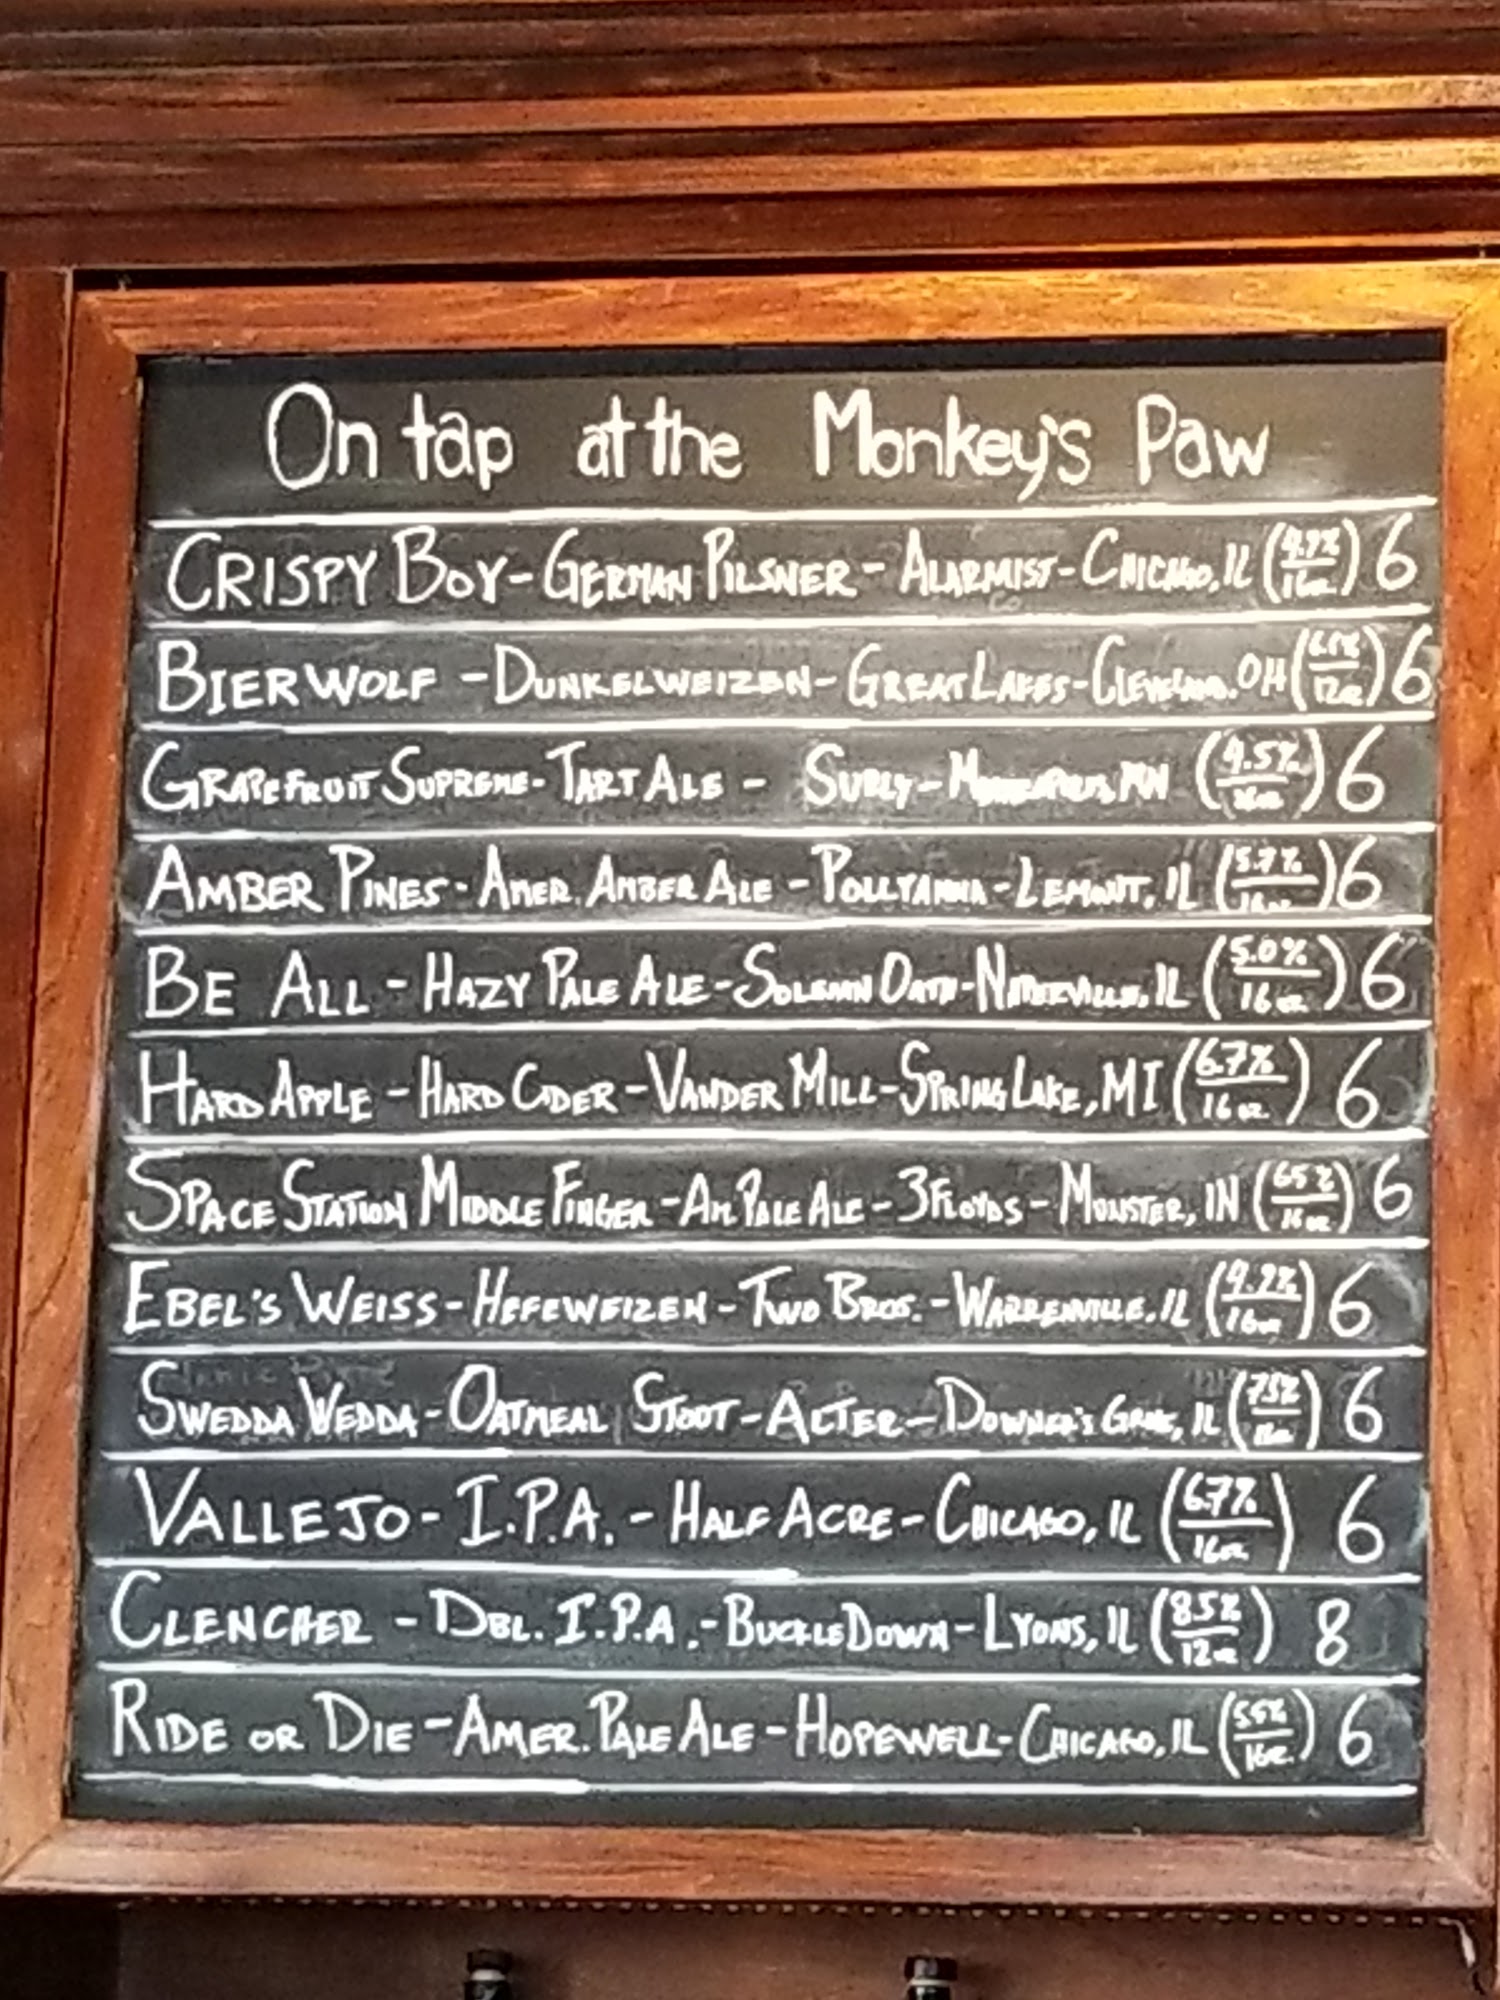 On tap at the Monkey's Paw
CRISPY BOY - GERMAN PILSNER - ALARMIST - CHICAGO, IL (4.7% 16oz) 6
BIERWOLF - DUNKELWEIZEN - GREAT LAKES - CLEVELAND, OH ( 12oz) 6
GRAPEFRUIT SUPREME - TART ALE - SURLY - MINNEAPOLIS, MN (4.5% 16oz) 6
AMBER PINES - AMER. AMBER ALE - POLLYANNA - LEMONT, IL (5.7% 16oz) 6
BE ALL - HAZY PALE ALE - SOLEMN OATH - NAPERVILLE, IL (5.0% 16oz) 6
HARD APPLE - HARD CIDER - VANDER MILL - SPRING LAKE, MI (6.7% 16oz) 6
SPACE STATION MIDDLE FINGER - AM PALE ALE - 3 FLOYDS - MUNSTER, IN (6.5% 16oz) 6
EBEL'S WEISS - HEFEWEIZEN - TWO BROS. - WARRENVILLE, IL (4.9% 16oz) 6
SWEDDA WEDDA - OATMEAL STOUT - ALTER - DOWNER'S GROVE, IL (7.5% ) 6
VALLEJO - I.P.A. - HALF ACRE - CHICAGO, IL (6.7% 16oz) 6
CLENCHER - DBL. I.P.A. - BUCKLEDOWN - LYONS, IL (8.5% 12oz) 8
RIDE OR DIE - AMER. PALE ALE - HOPEWELL - CHICAGO, IL (5.5% 16oz) 6